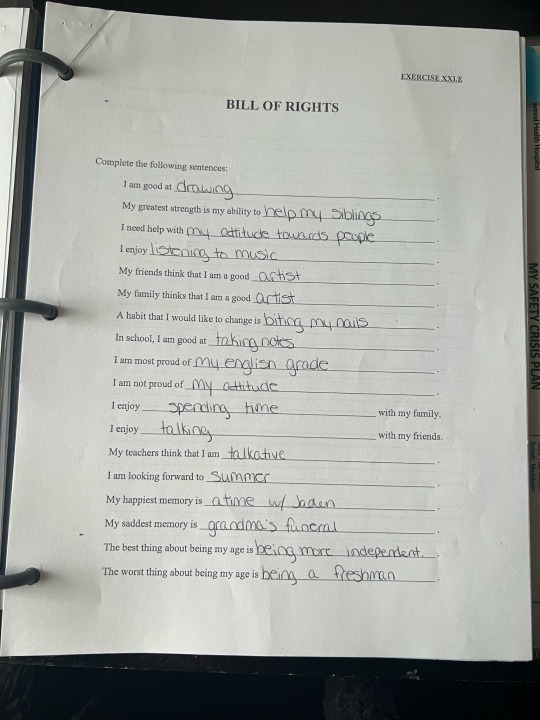 EXERCISE XXI.E
BILL OF RIGHTS
Complete the following sentences:
I am good at drawing.
My greatest strength is my ability to help my siblings.
I need help with my attitude towards people.
I enjoy listening to music.
My friends think that I am a good artist.
My family thinks that I am a good artist.
A habit that I would like to change is biting my nails.
In school, I am good at taking notes.
I am most proud of my english grade.
I am not proud of my attitude.
I enjoy spending time with my family.
I enjoy talking with my friends.
My teachers think that I am talkative.
I am looking forward to summer.
My happiest memory is a time w/ Jaden.
My saddest memory is grandma's funeral.
The best thing about being my age is being more independent.
The worst thing about being my age is being a freshman.
MY SAFETY CRISIS PLAN
Health Hospital